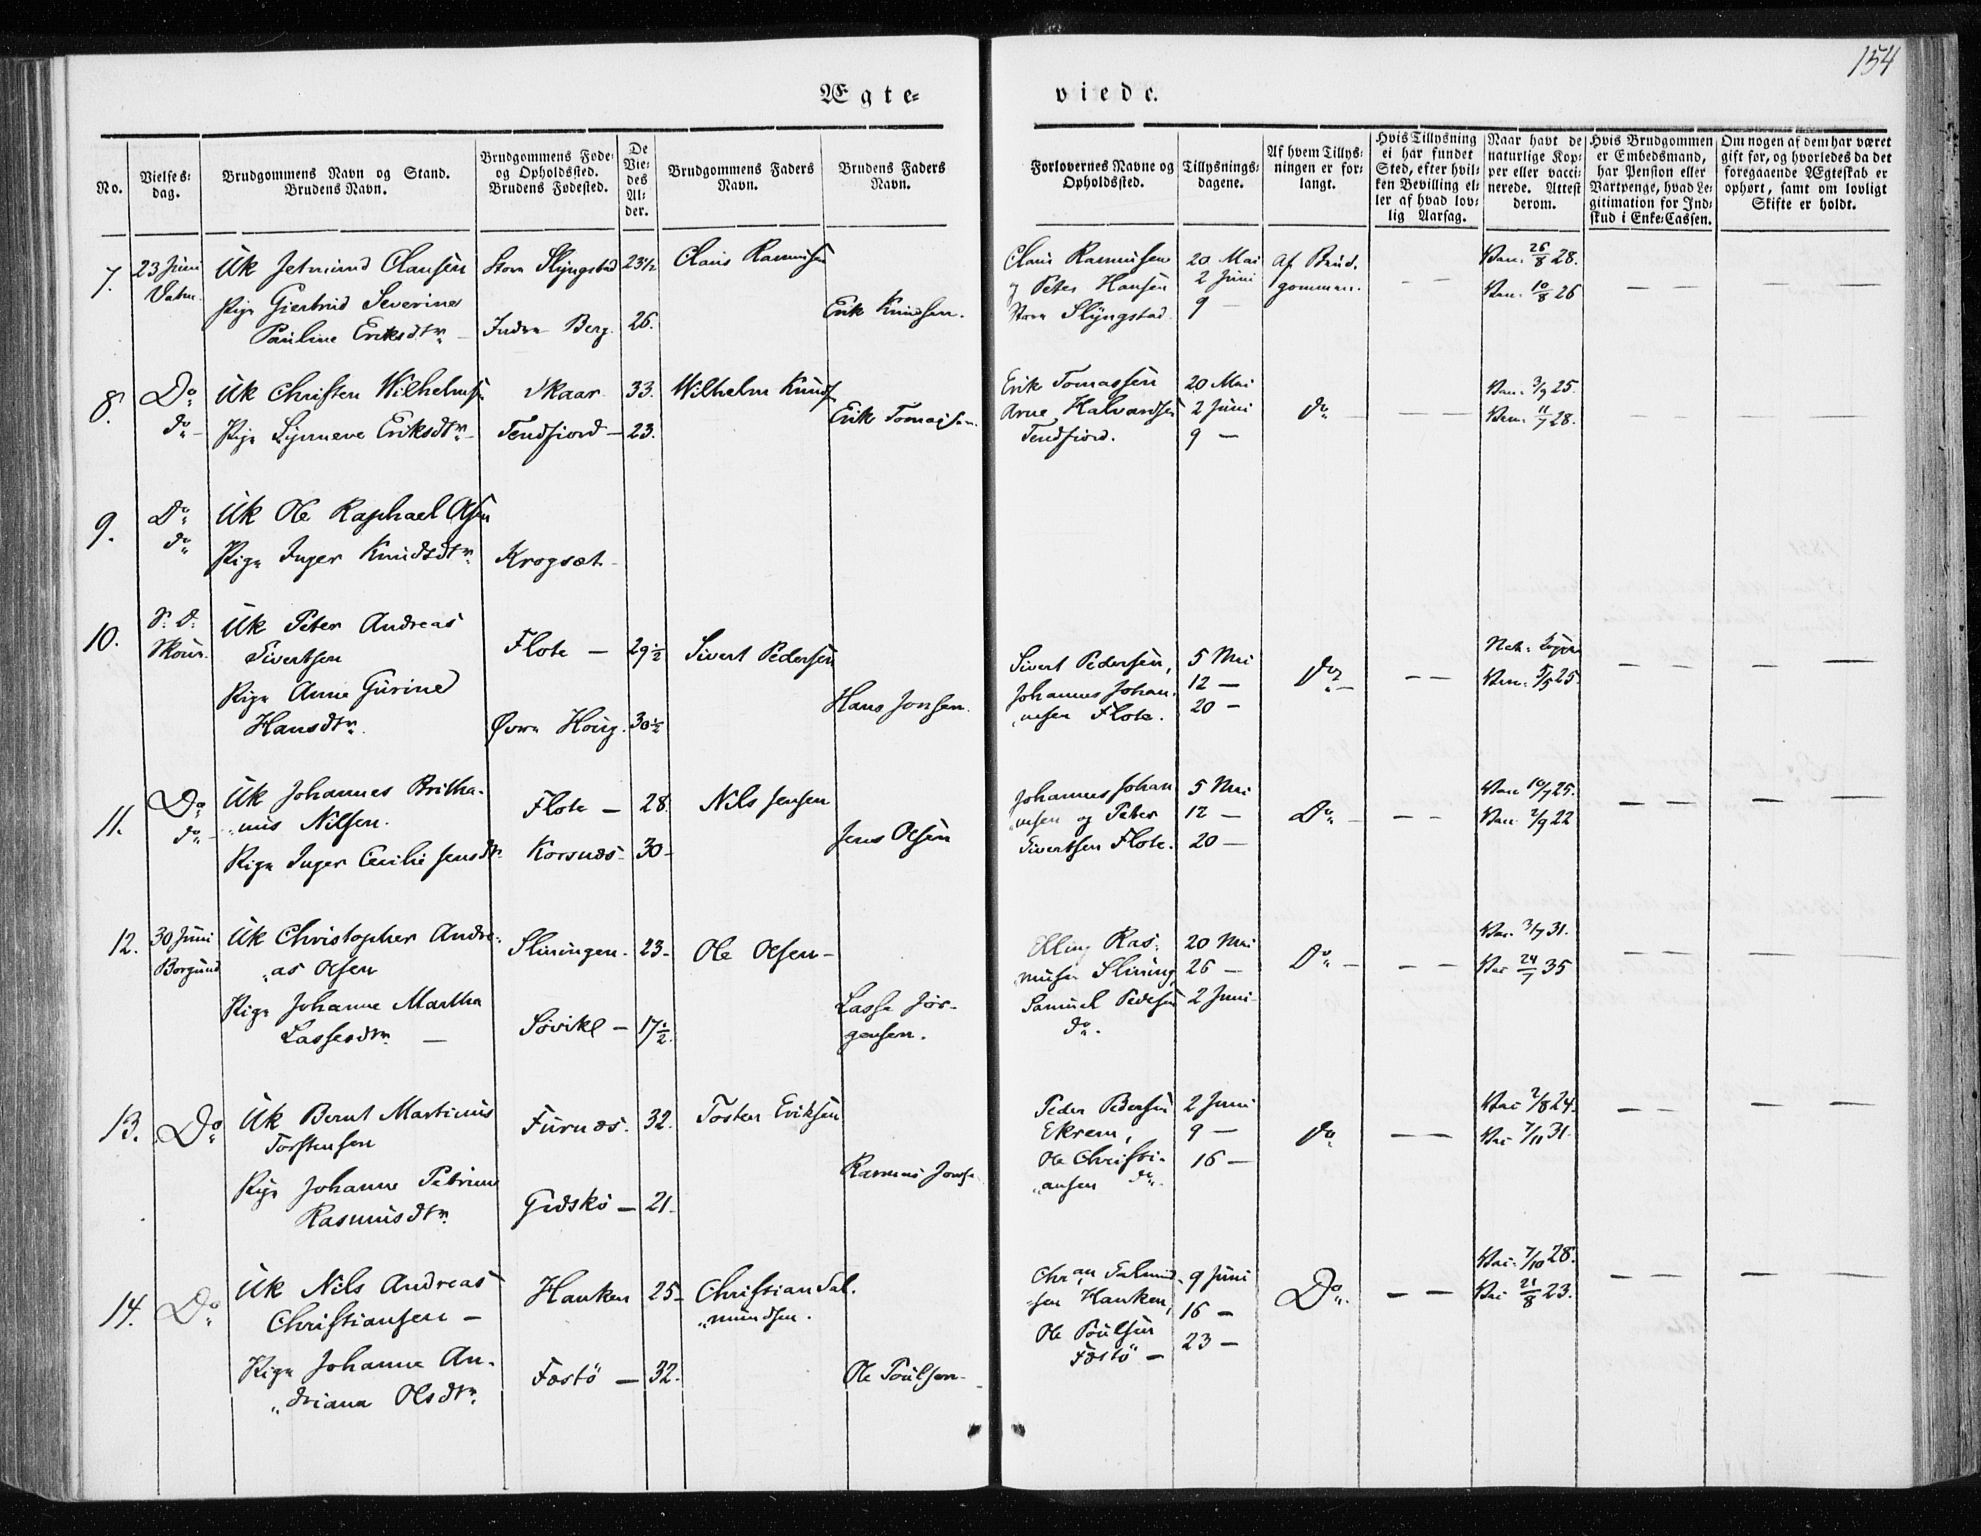 154
Ægte-
viede.
No.
Vielses-
dag.
Brudgommens Navn og Stand.
Brudens Navn.
Brudgommens Føde-
og Opholdssted.
Brudens Fødested.
De
Vie-
des
Al-
der.
Brudgommens Faders
Navn.
Brudens Faders
Navn.
Forlovernes Navne og
Opholdssted.
Tillysnings-
dagene.
Af hvem Tillys-
ningen er for-
langt.
Hvis Tillysning
ei har fundet
Sted, efter hvil-
ken Bevilling el-
ler af hvad lov-
lig Aarsag.
Naar havt de
naturlige Kop-
per eller vacci-
nerede. Attest
derom.
Hvis Brudgommen
er Embedsmand,
har Pension eller
Vartpenge, hvad Le-
gitimation for Ind-
skud i Enke-Cassen.
Om nogen af dem har været
gift før, og hvorledes da det
foregaaende Ægteskab er
ophørt, samt om lovligt
Skifte er holdt.
7.
23 Juni
Vatn.
Uk Jetmund Clausen
Pige Giertrud Severine
Pauline Eriksdtr
Store Slyngstad 23½
Indre Berg 26.
Claus Rasmusen
Erik Knudsen.
Claus Rasmusen
og Peter Hansen
Store Slyngstad
20 Mai
2 Juni
9 —
Af Brud-
gommen.
— —
Vac. 26/8 28.
Vac. 10/8 26
— —
—
8.
Do
do
Uk Christen Wilhelms.
Pige Synneve Eriksdtr
Skaar 33.
Tendfiord — 23.
Wilhelm Knuds.
Erik Tomassen.
Erik Tomassen
Arne Halvardsen
Tendfiord.
20 Mai
2 Juni
9 —
do —
— —
Vac. 3/9 25.
Vac. 11/7 28.
— —
—
9.
Do
do
Uk Ole Raphael Olsen
Pige Inger Knudsdtr
Krogsæt
10.
S. D.
Skouv.
Uk Peter Andreas
Sivertsen
Pige Anne Gurine
Hansdtr.
Flote — 29½
Øvre Houg. 30½
Sivert Pedersen
Hans Jonsen.
Sivert Pedersen,
Johannes Johan-
nesen Flote.
5 Mai
12 —
20 —
Do —
— —
Nat.
Vac. 5/5 25
— —
—
11.
Do
do
Uk Johannes Britha-
nus Nilsen.
Pige Inger Cecilie Jensdtr
Flote — 28.
Korsnæs 30
Nils Jensen
Jens Olsen
Johannes Johan-
nesen og Peter
Sivertsen Flote.
5 Mai
12 —
20 —
Do —
— —
Vac 10/9 25.
Vac. 2/9 22
— —
—
12.
30 Juni
Borgund
Uk Christopher Andre-
as Olsen
Pige Johanne Martha
Lassesdtr —
Sliningen. 23.
Søvikl — 17½
Ole Olsen —
Lasse Jør-
gensen.
Elling Ras-
musen Slining,
Samuel Pedersen
do.
20 Mai
26 —
2 Juni
Do —
— —
Vac. 3/9 31.
Vac 24/7 35
— —
—
13.
Do
Uk Bernt Martinus
Torstensen
Pige Johanne Petrine
Rasmusdtr.
Furnæs. 32.
Gidskø — 21.
Tosten Eriksen
Rasmus Jons.
Peder Pedersen
Ekrem,
Ole Christi-
ansen do.
2 Juni
9 —
16 —
Do
— —
Vac 2/8 24.
Vac 7/11 31.
— —
—
14.
Do
Uk Nils Andreas
Christiansen —
Pige Johanne An-
driana Olsdtr.
Hanken 25
Fæstö — 32.
Christian Sal-
mundsen.
Ole Poulsen —
Chr.an Salmund-
sen Hanken,
Ole Poulsen
Fæstö —
9 Juni
16 —
23 —
Do.
— —
Vac. 7/10 28.
Vac 21/8 23.
— —
—